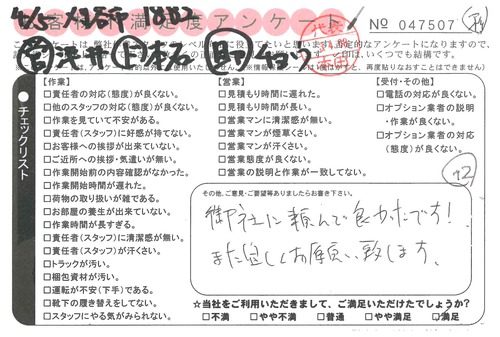 お客様の満足度アンケート
№ 047507
チェックリスト
【作業】
□責任者の対応(態度)が良くない。
□他のスタッフの対応(態度)が良くない。
□作業を見ていて不安がある。
□責任者(スタッフ)に好感が持てない。
□お客様への挨拶が出来ていない。
□ご近所への挨拶・気遣いが無い。
□作業開始前の内容確認がなかった。
□作業開始時間が遅れた。
□荷物の取り扱いが雑である。
□お部屋の養生が出来ていない。
□作業時間が長すぎる。
□責任者(スタッフ)に清潔感が無い。
□責任者(スタッフ)が汗くさい。
□トラックが汚い。
□梱包資材が汚い。
□運転が不安(下手)である。
□靴下の履き替えをしてない。
□スタッフにやる気がみられない。
【営業】
□見積もり時間に遅れた。
□見積もり時間が長い。
□営業マンに清潔感が無い。
□営業マンが煙草くさい。
□営業マンが汗くさい。
□営業態度が良くない。
□営業の説明と作業が一致してない。
【受付・その他】
□電話の対応が良くない。
□オプション業者の説明
・作業が良くない。
□オプション業者の対応
(態度)が良くない。
92
その他、ご意見・ご要望等ありましたらお書き下さい。
御社に頼んで良かったです!
また宜しくお願い致します。
☆当社をご利用いただきまして、ご満足いただけたでしょうか?
□不満 □やや不満 □普通 □やや満足 □満足